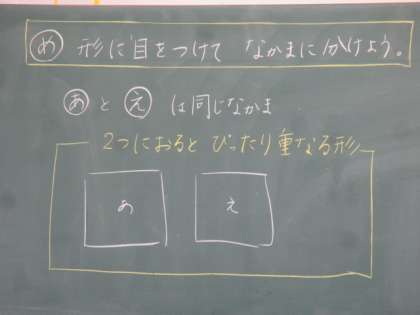 め 形に目をつけて なかまに分けよう。
あ と え は同じなかま
2つにおると ぴったり重なる形
あ え